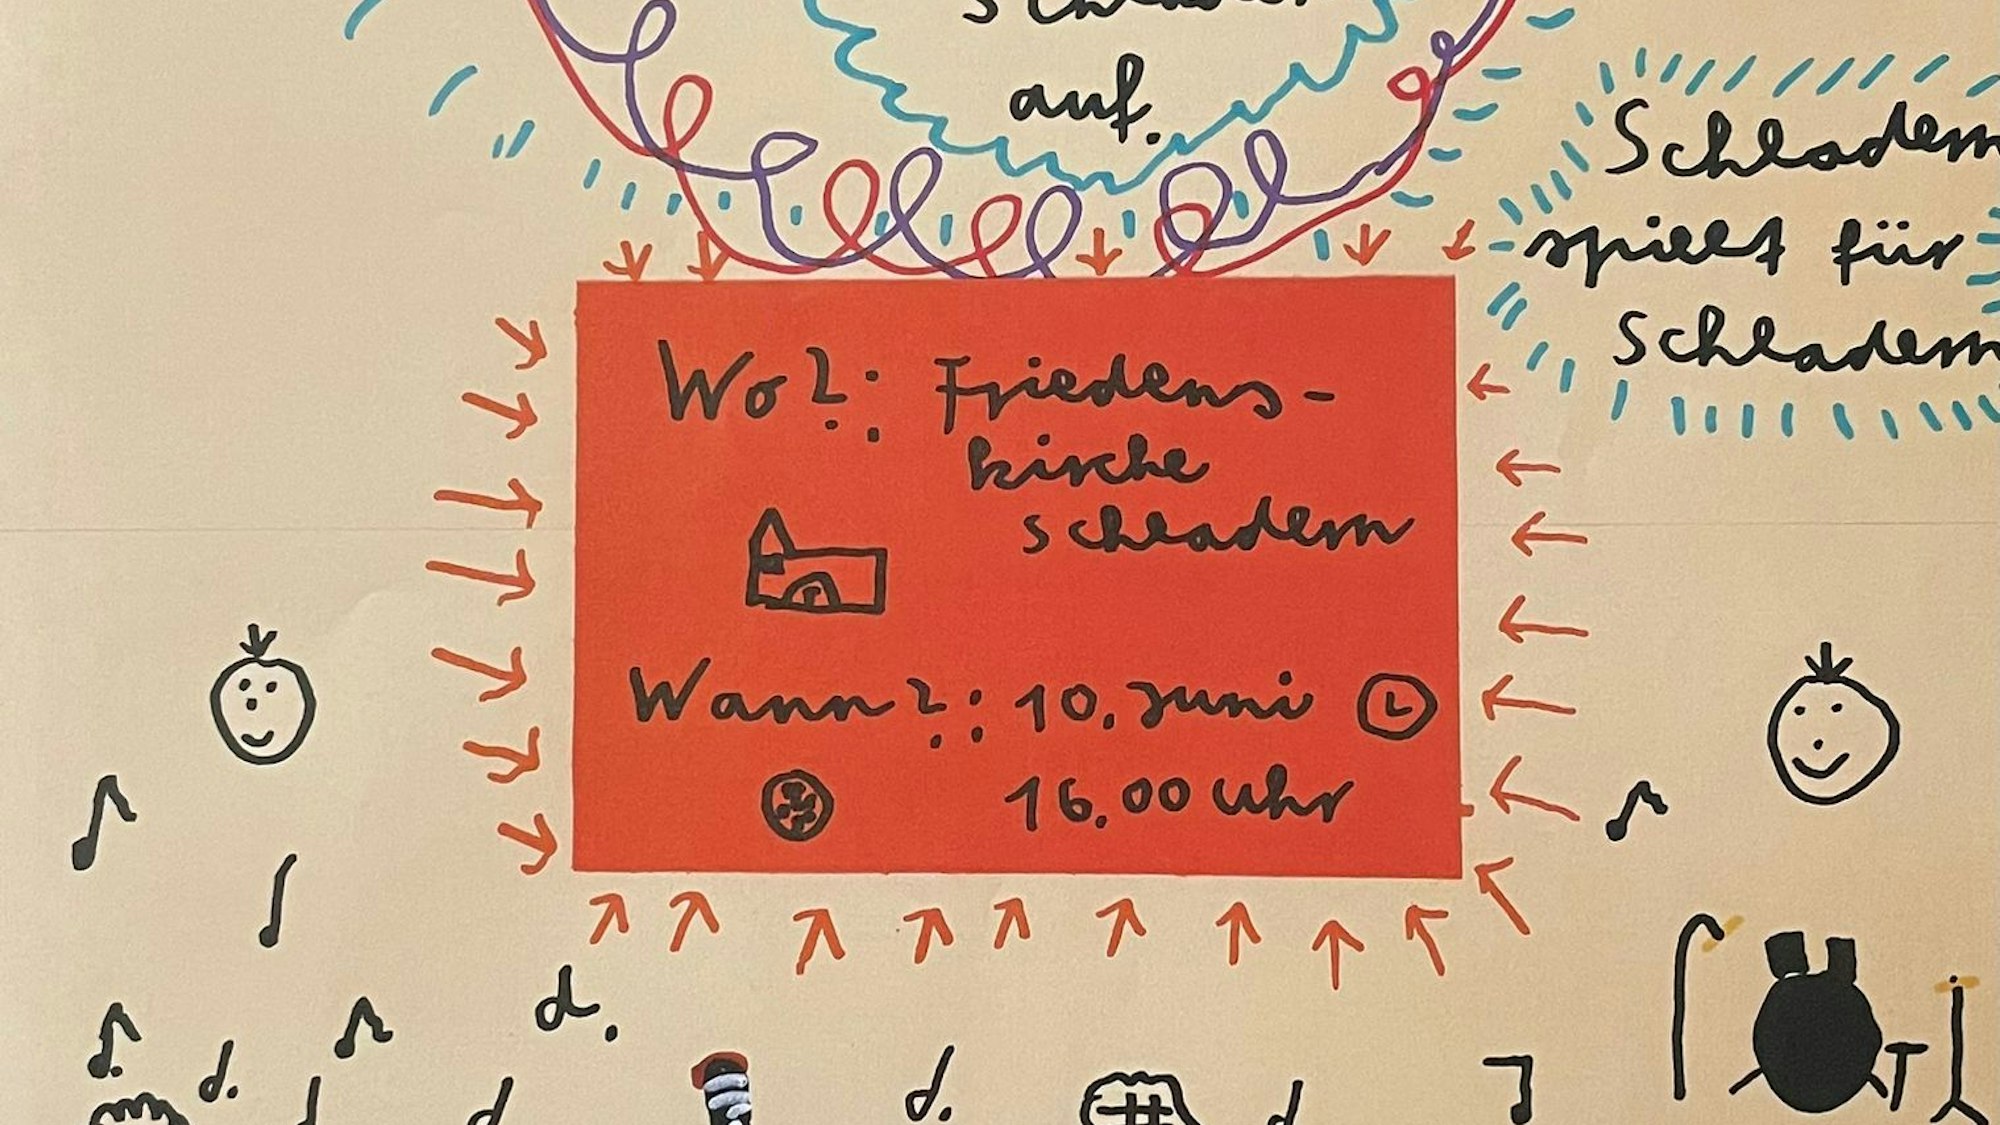 auf.
Schladern
spielt für
Schladern
Wo?: Friedens-
kirche
Schladern
Wann?: 10. Juni
16.00 Uhr